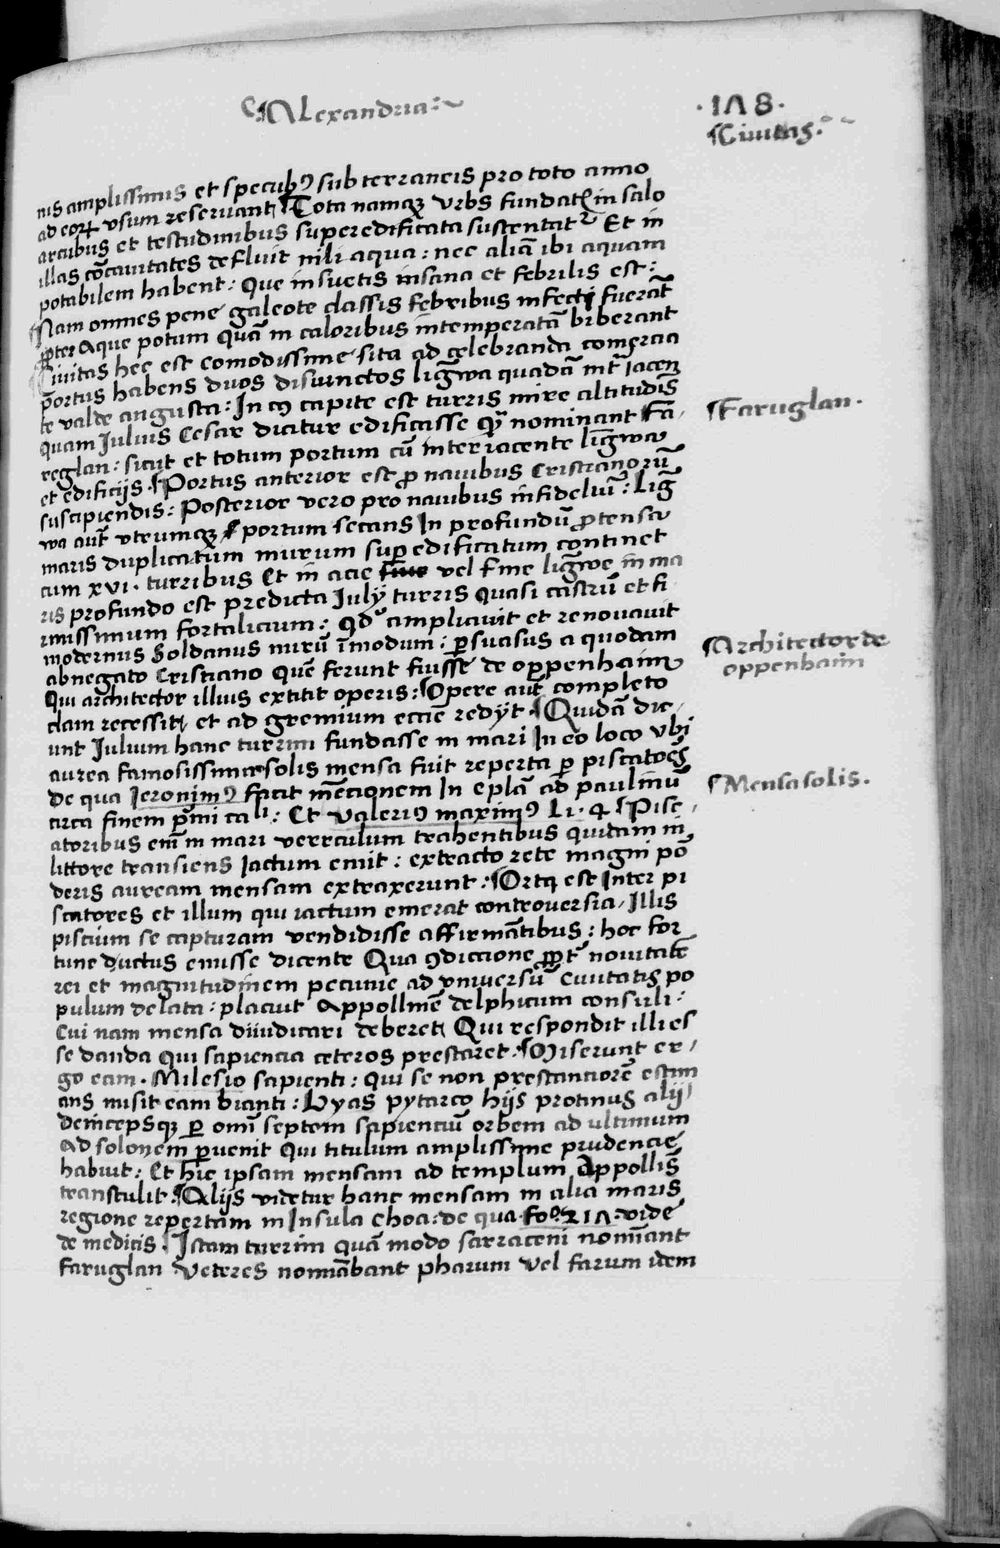 Alexandria
·178·
Ciuitas.
nis amplissimis et specubꝰ subterraneis pro toto anno
ad eoꝝ vsum reseruant ¶Tota namqꝫ vrbs fundata in salo
arcubus et testudinibus superedificata sustentatᷣ Et in
illas cōcauitates defluit nili aqua: nec aliā ibi aquam
potabilem habent: Que insuetis insana et febrilis est:
Nam omnes pene galeote classis febribus infecti fuerāt
ꝓpter aque potum quā in caloribus intemperatā biberant
¶Ciuitas hec est comodissime sita ad celebranda comertia
portus habens duos disiunctos ligwa quadā int̄ iacen
te valde angusta: In cꝰ capite est turris mire altitudis̄
quam Julius Cesar dicitur edificasse qͣ nominant Fa-
reglan: sicut et totum portum cū interiacente lingwa
et edificijs. ¶Portus anterior est ꝓ nauibus Cristianorū
suscipiendis: Posterior vero pro nauibus infideliū: Lig
wa aut̄ vtrumqꝫ portum secans In profundū ꝓtensa
maris duplicatum murum suꝑedificatum continet
cum xvi. turribus Et in acie vel fine ligwe in ma
ris profundo est predicta Julij turris quasi castrū et fi
rmissimum fortalicium: qđ ampliauit et renouauit
modernus Soldanus mirū īmodum: ꝑsuasus a quodam
abnegato Cristiano quē ferunt fuisse de oppenhaim
Qui architector illius extitit operis: Opere aut̄ completo
clam recessit et ad gremium eccīe redijt. ¶Quidā dic-
unt Julium hanc turrim fundasse in mari In eo loco vbi
aurea famosissima solis mensa fuit reperta ꝑ piscatoēs
de qua Jeronimꝰ facit mētionem In eplā ad paulinū
circa finem pͥmi caˡⁱ: Et Valeriꝰ maximꝰ Li. 4. ¶Pisc-
atoribus enī in mari verriculum trahentibus quidam in
littore transiens Jactum emit: extracto rete magni pō
deris auream mensam extraxerunt: Orta est Inter pi
scatores et illum qui iactum emerat controuersia, Illis
piscium se capturam vendidisse affirmātibus: hoc for
tune ductus emisse dicente Qua ꝯdiccione ꝓpt̄ nouitatē
rei et magnitudinem pecunie ad vniuersū Ciuitatis po
pulum delata: placuit Appollinē delphicum consuli:
Cui nam mensa diiudicari deberet Qui respondit illi es
se danda qui sapiencia ceteros prestaret. Miserunt er-
go eam. Milesio sapienti: qui se non prestanciorē estim
ans misit eam bianti: Byas pytarco hijs protinus alij
deincepsqꝫ ꝑ omī septem sapienciū orbem ad ultimum
Ad solonem ꝑuenit Qui titulum amplissime prudencie
habuit: Et hic ipsam mensam ad templum Appollis̄
transtulit. ¶Alijs videtur hanc mensam in alia maris
regione repertam in Insula choa: de qua fo. 217. vide
de medicis. ¶Istam turrim quā modo sarraceni nomīant
Faruglan Veteres nomīabant pharum vel farum idem
¶Faruglan.
¶Architector de
oppenhaim
¶Mensa solis.